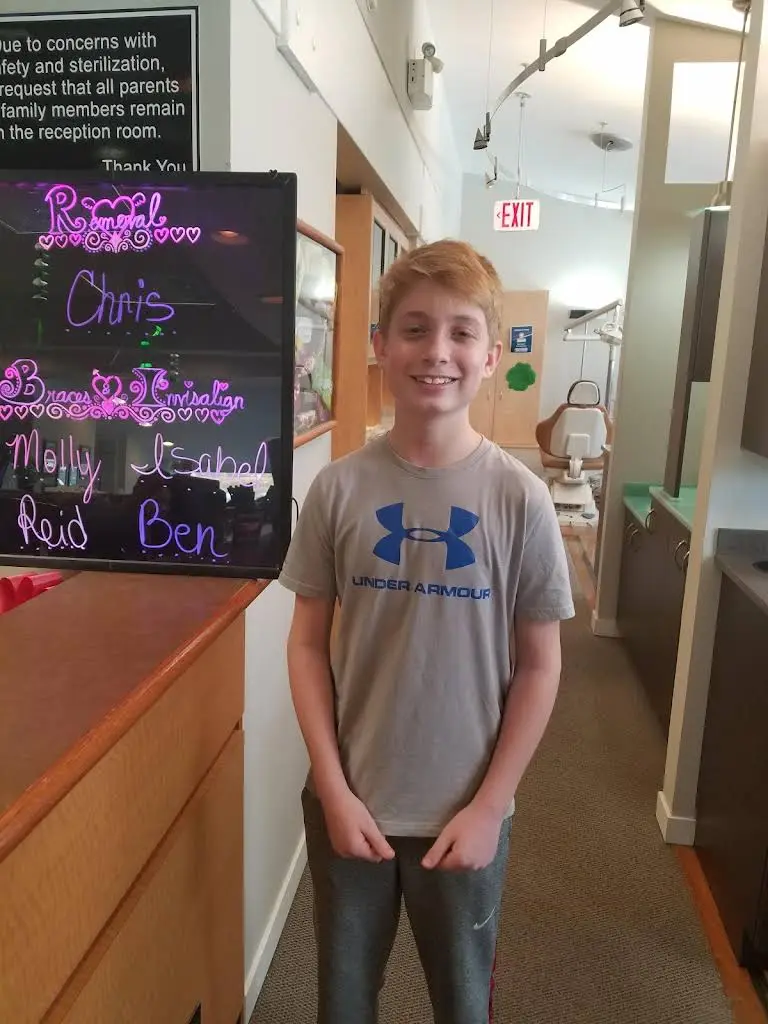 Due to concerns with
fety and sterilization,
request that all parents
family members remain
n the reception room.
Thank You
Removal
Chris
Braces Invisalign
Molly Isabel
Reid Ben
EXIT
UNDER ARMOUR